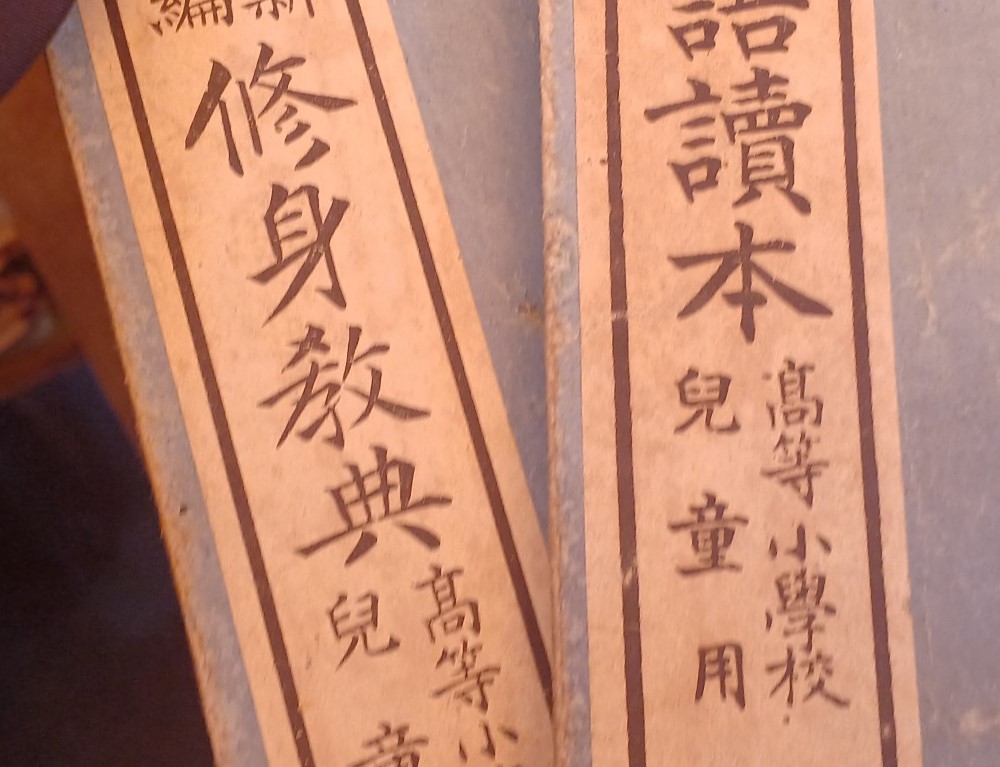 語讀本
高等小學校
兒童用
新編
修身教典
高等小
兒童